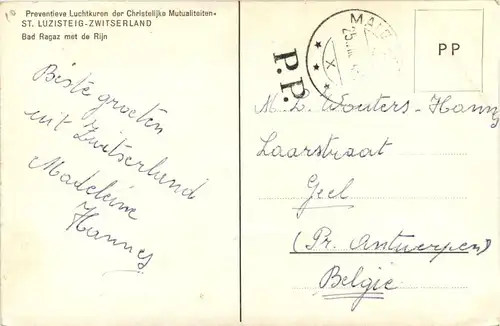 Preventieve Luchtkuren der Christelijke Mutualiteiten-
ST. LUZISTEIG-ZWITSERLAND
Bad Ragaz met de Rijn
Beste groeten
uit Zwitserland
Madeleine
Hannes
P.P.
X
PP
M. L. Wouters-Hannes
Laarstraat
Geel
(Pr. Antwerpen)
België